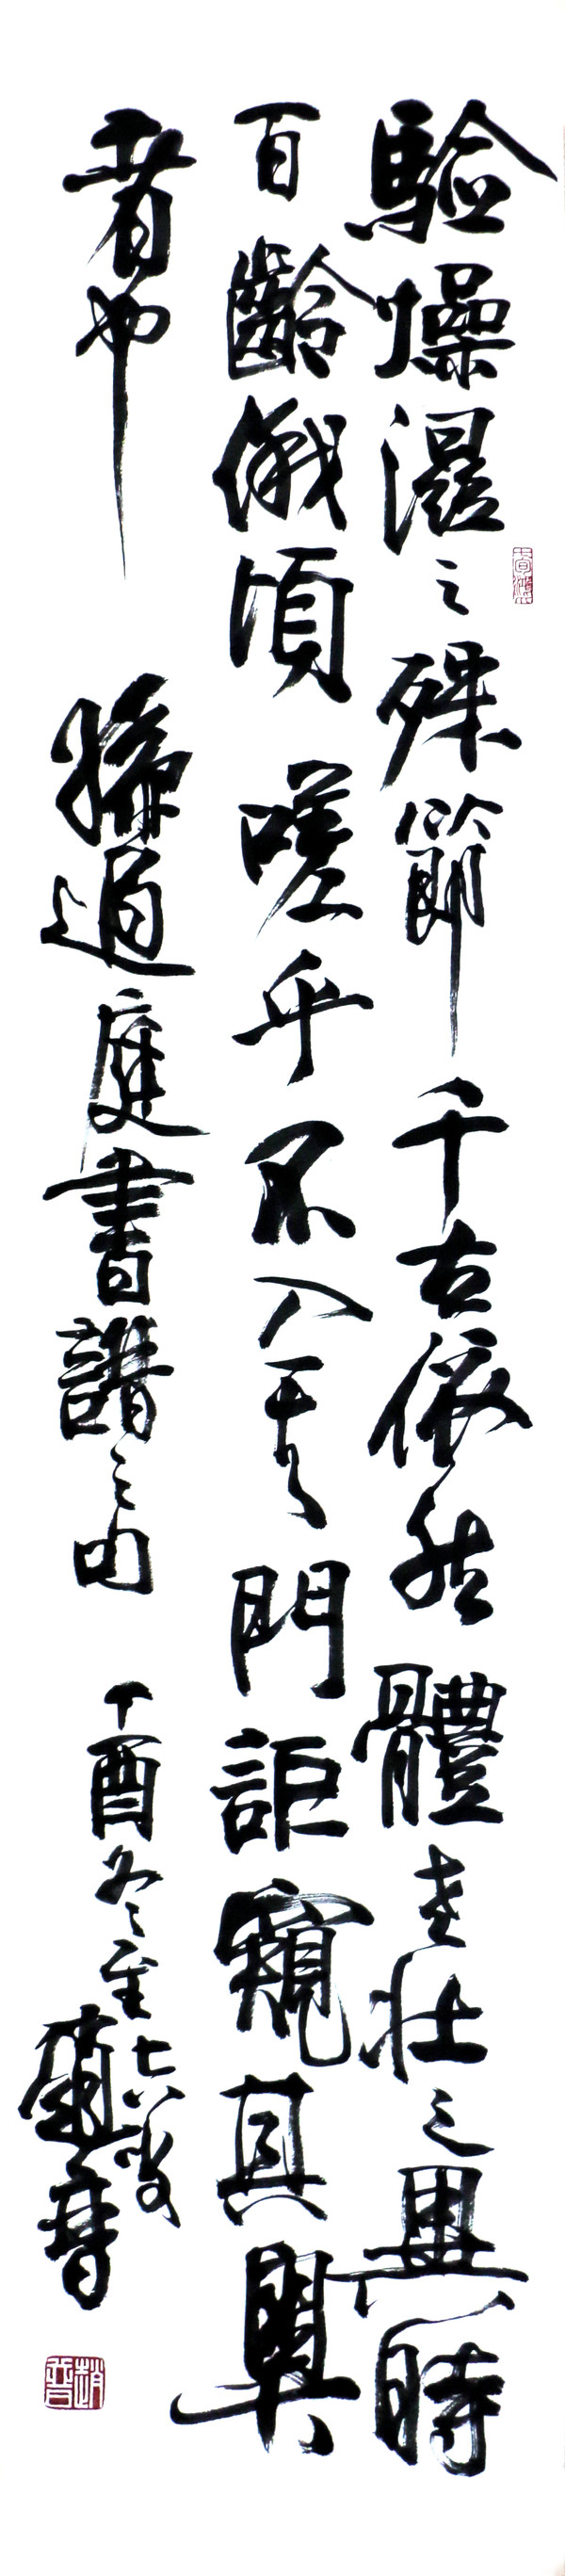 驗燥濕之殊節千古依然體老壯之異時
百齡俄頃嗟乎不入其門詎窺其奧
者也 孫過庭書譜之句 丁酉冬至七八叟